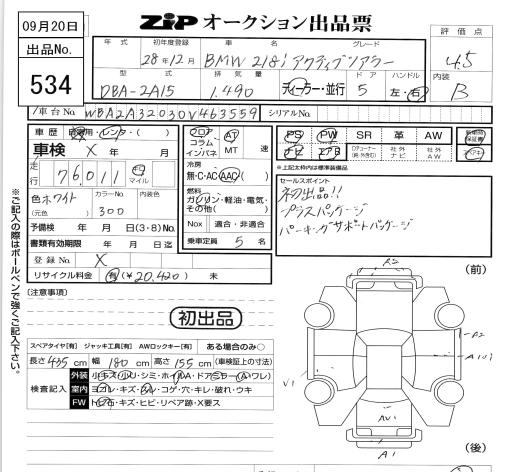 09月20日
出品No.
534
ZIP オークション出品票
評価点
4.5
内装
B
年式 初年度登録 車名 グレード
28年12月 BMW 218i アクティブツアラー
型式 排気量 ドア ハンドル
DBA-2A15 1.490 ディーラー・並行 5 左・右
車台No. WBA2A32030V463559 シリアルNo.
車歴 自家用・レンタ・( )
車検 X 年 月
走行 76,011 キロ マイル
色 ホワイト カラーNo. 内装色
(元色) 300
予備検 年 月 日(3・8)
書類有効期限 年 月 日迄
登録No. X
リサイクル料金 有(¥20,420) 未
フロア コラム インパネ AT MT 速
冷房
無・C・AC・AAC
燃料
ガソリン・軽油・電気・その他( )
Nox 適合・非適合
乗車定員 5 名
PS PW SR 革 AW
ナビ エアB DチューナーI 社外ナビ 社外AW
新車時保証書
*上記太枠内は標準装備品
セールスポイント
初出品!!
プラスパッケージ
パーキングサポートパッケージ
※ご記入の際はボールペンで強くご記入下さい。
(注意事項)
初出品
スペアタイヤ[有] ジャッキ工具[有] AWロックキー[有] ある場合のみ○
長さ 435 cm 幅 180 cm 高さ 155 cm (車検証上の寸法)
検査記入
外装
室内 ヨゴレ・キズ・スレ・コゲ・穴・キレ・破れ・ウキ
FW トビ石・キズ・ヒビ・リペア跡・X要ス
(前)
R2
A2
V1
AU1
A1
(後)